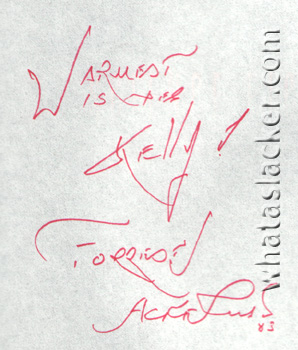 WARMEST
Kelly!
FORREST J
ACKERMAN
83
whataslacker.com